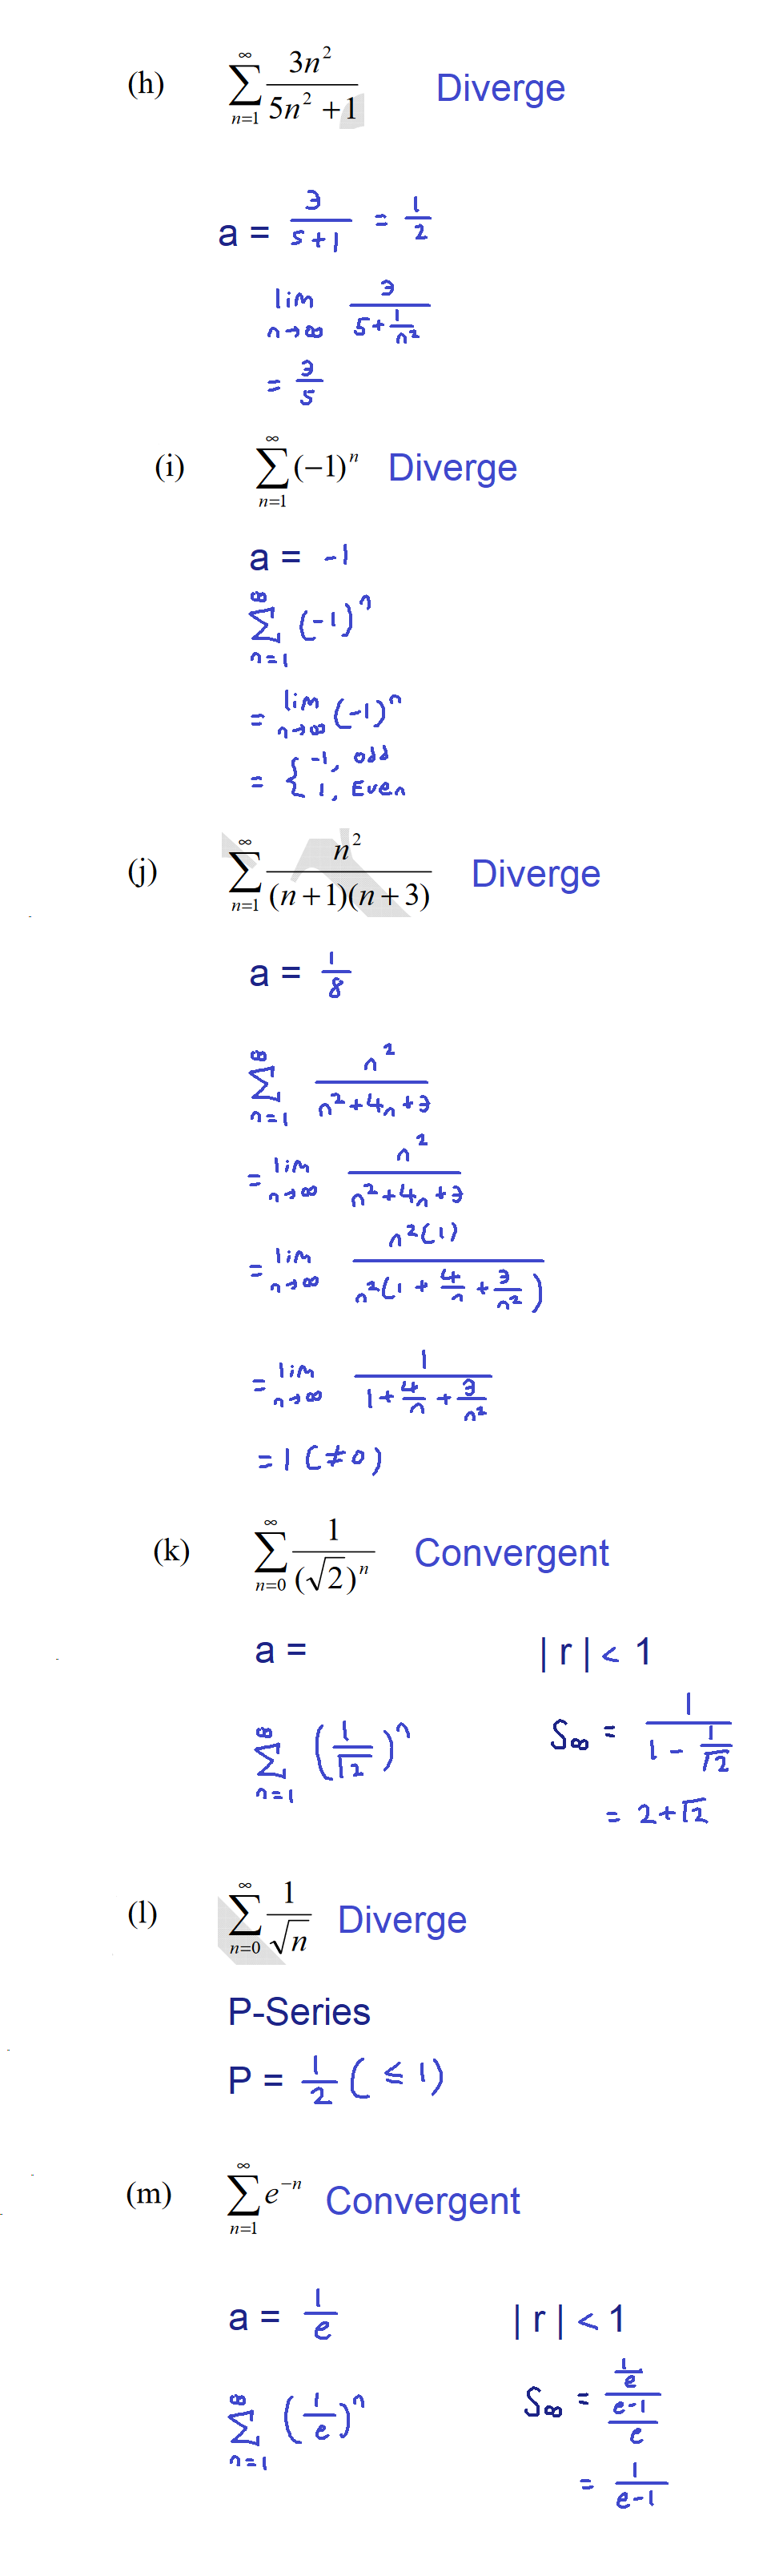 (h) ∑_{n=1}^{∞} 3n²/(5n² + 1) Diverge
a = 3/(5+1) = 1/2
lim_{n→∞} 3/(5+1/n²)
= 3/5
(i) ∑_{n=1}^{∞} (−1)ⁿ Diverge
a = -1
∑_{n=1}^{∞} (-1)ⁿ
= lim_{n→∞} (-1)ⁿ
= { -1, odd
1, Even
(j) ∑_{n=1}^{∞} n²/((n+1)(n+3)) Diverge
a = 1/8
∑_{n=1}^{∞} n²/(n²+4n+3)
= lim_{n→∞} n²/(n²+4n+3)
= lim_{n→∞} n²(1)/(n²(1 + 4/n + 3/n²))
= lim_{n→∞} 1/(1+4/n+3/n²)
= 1 (≠0)
(k) ∑_{n=0}^{∞} 1/(√2)ⁿ Convergent
a = | r | < 1
∑_{n=1}^{∞} (1/√2)ⁿ S∞ = 1/(1 - 1/√2)
= 2+√2
(l) ∑_{n=0}^{∞} 1/√n Diverge
P-Series
P = 1/2 ( ≤ 1)
(m) ∑_{n=1}^{∞} e⁻ⁿ Convergent
a = 1/e | r | < 1
∑_{n=1}^{∞} (1/e)ⁿ S∞ = (1/e)/((e-1)/e)
= 1/(e-1)